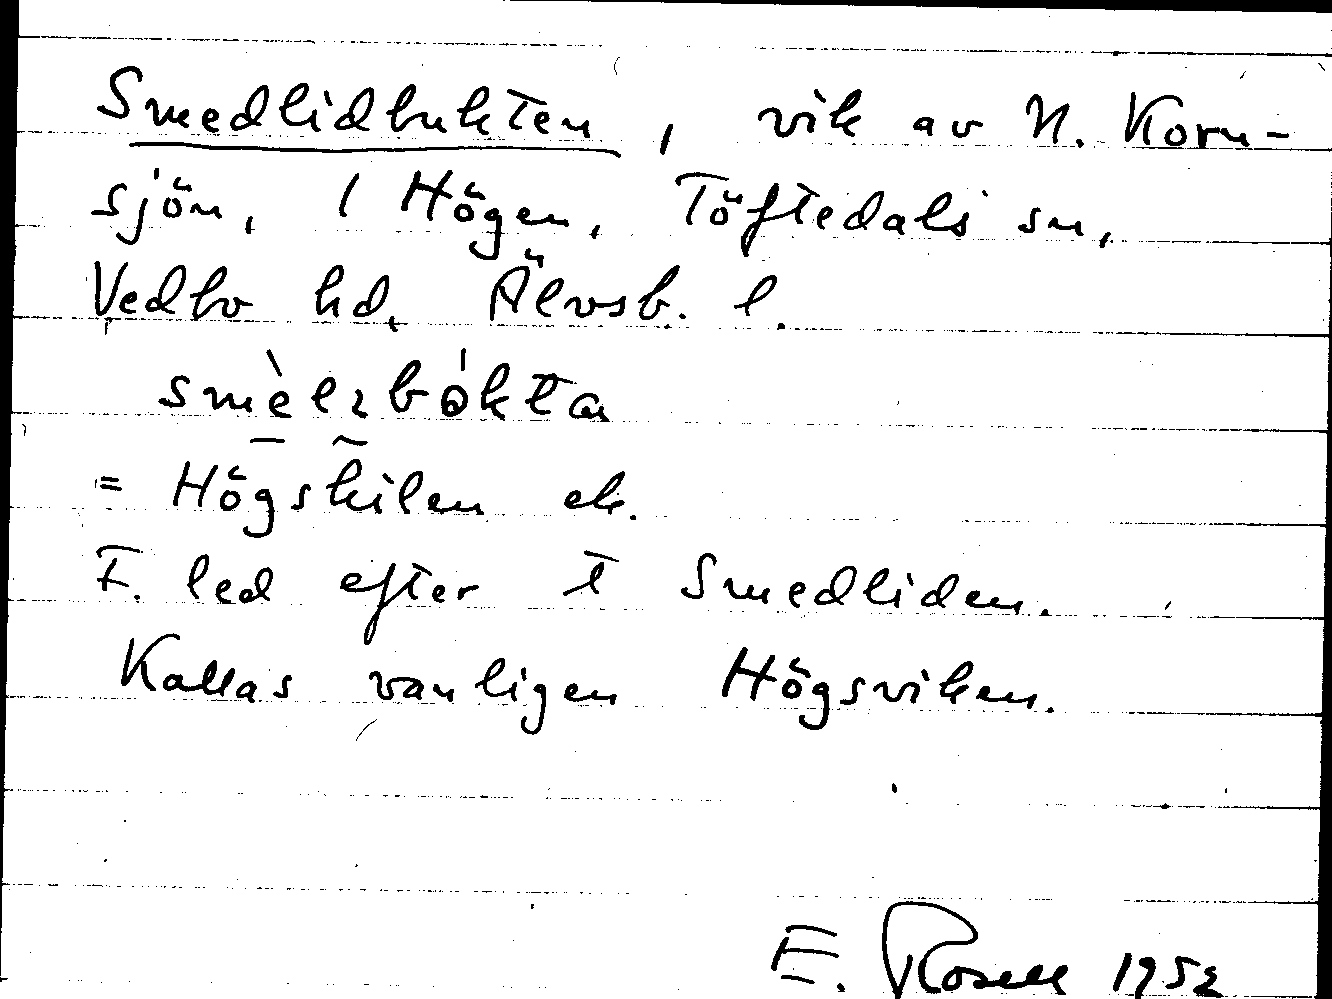 Smedlidbukten, vik av N. Korn-
sjön, 1 Högen, Töftedals sn,
Vedbo hd, Älvsb. l.
smèlɩbókta
= Högskilen ek.
F. led efter t Smedliden.
Kallas vanligen Högsviken.
E. Rosell 1952